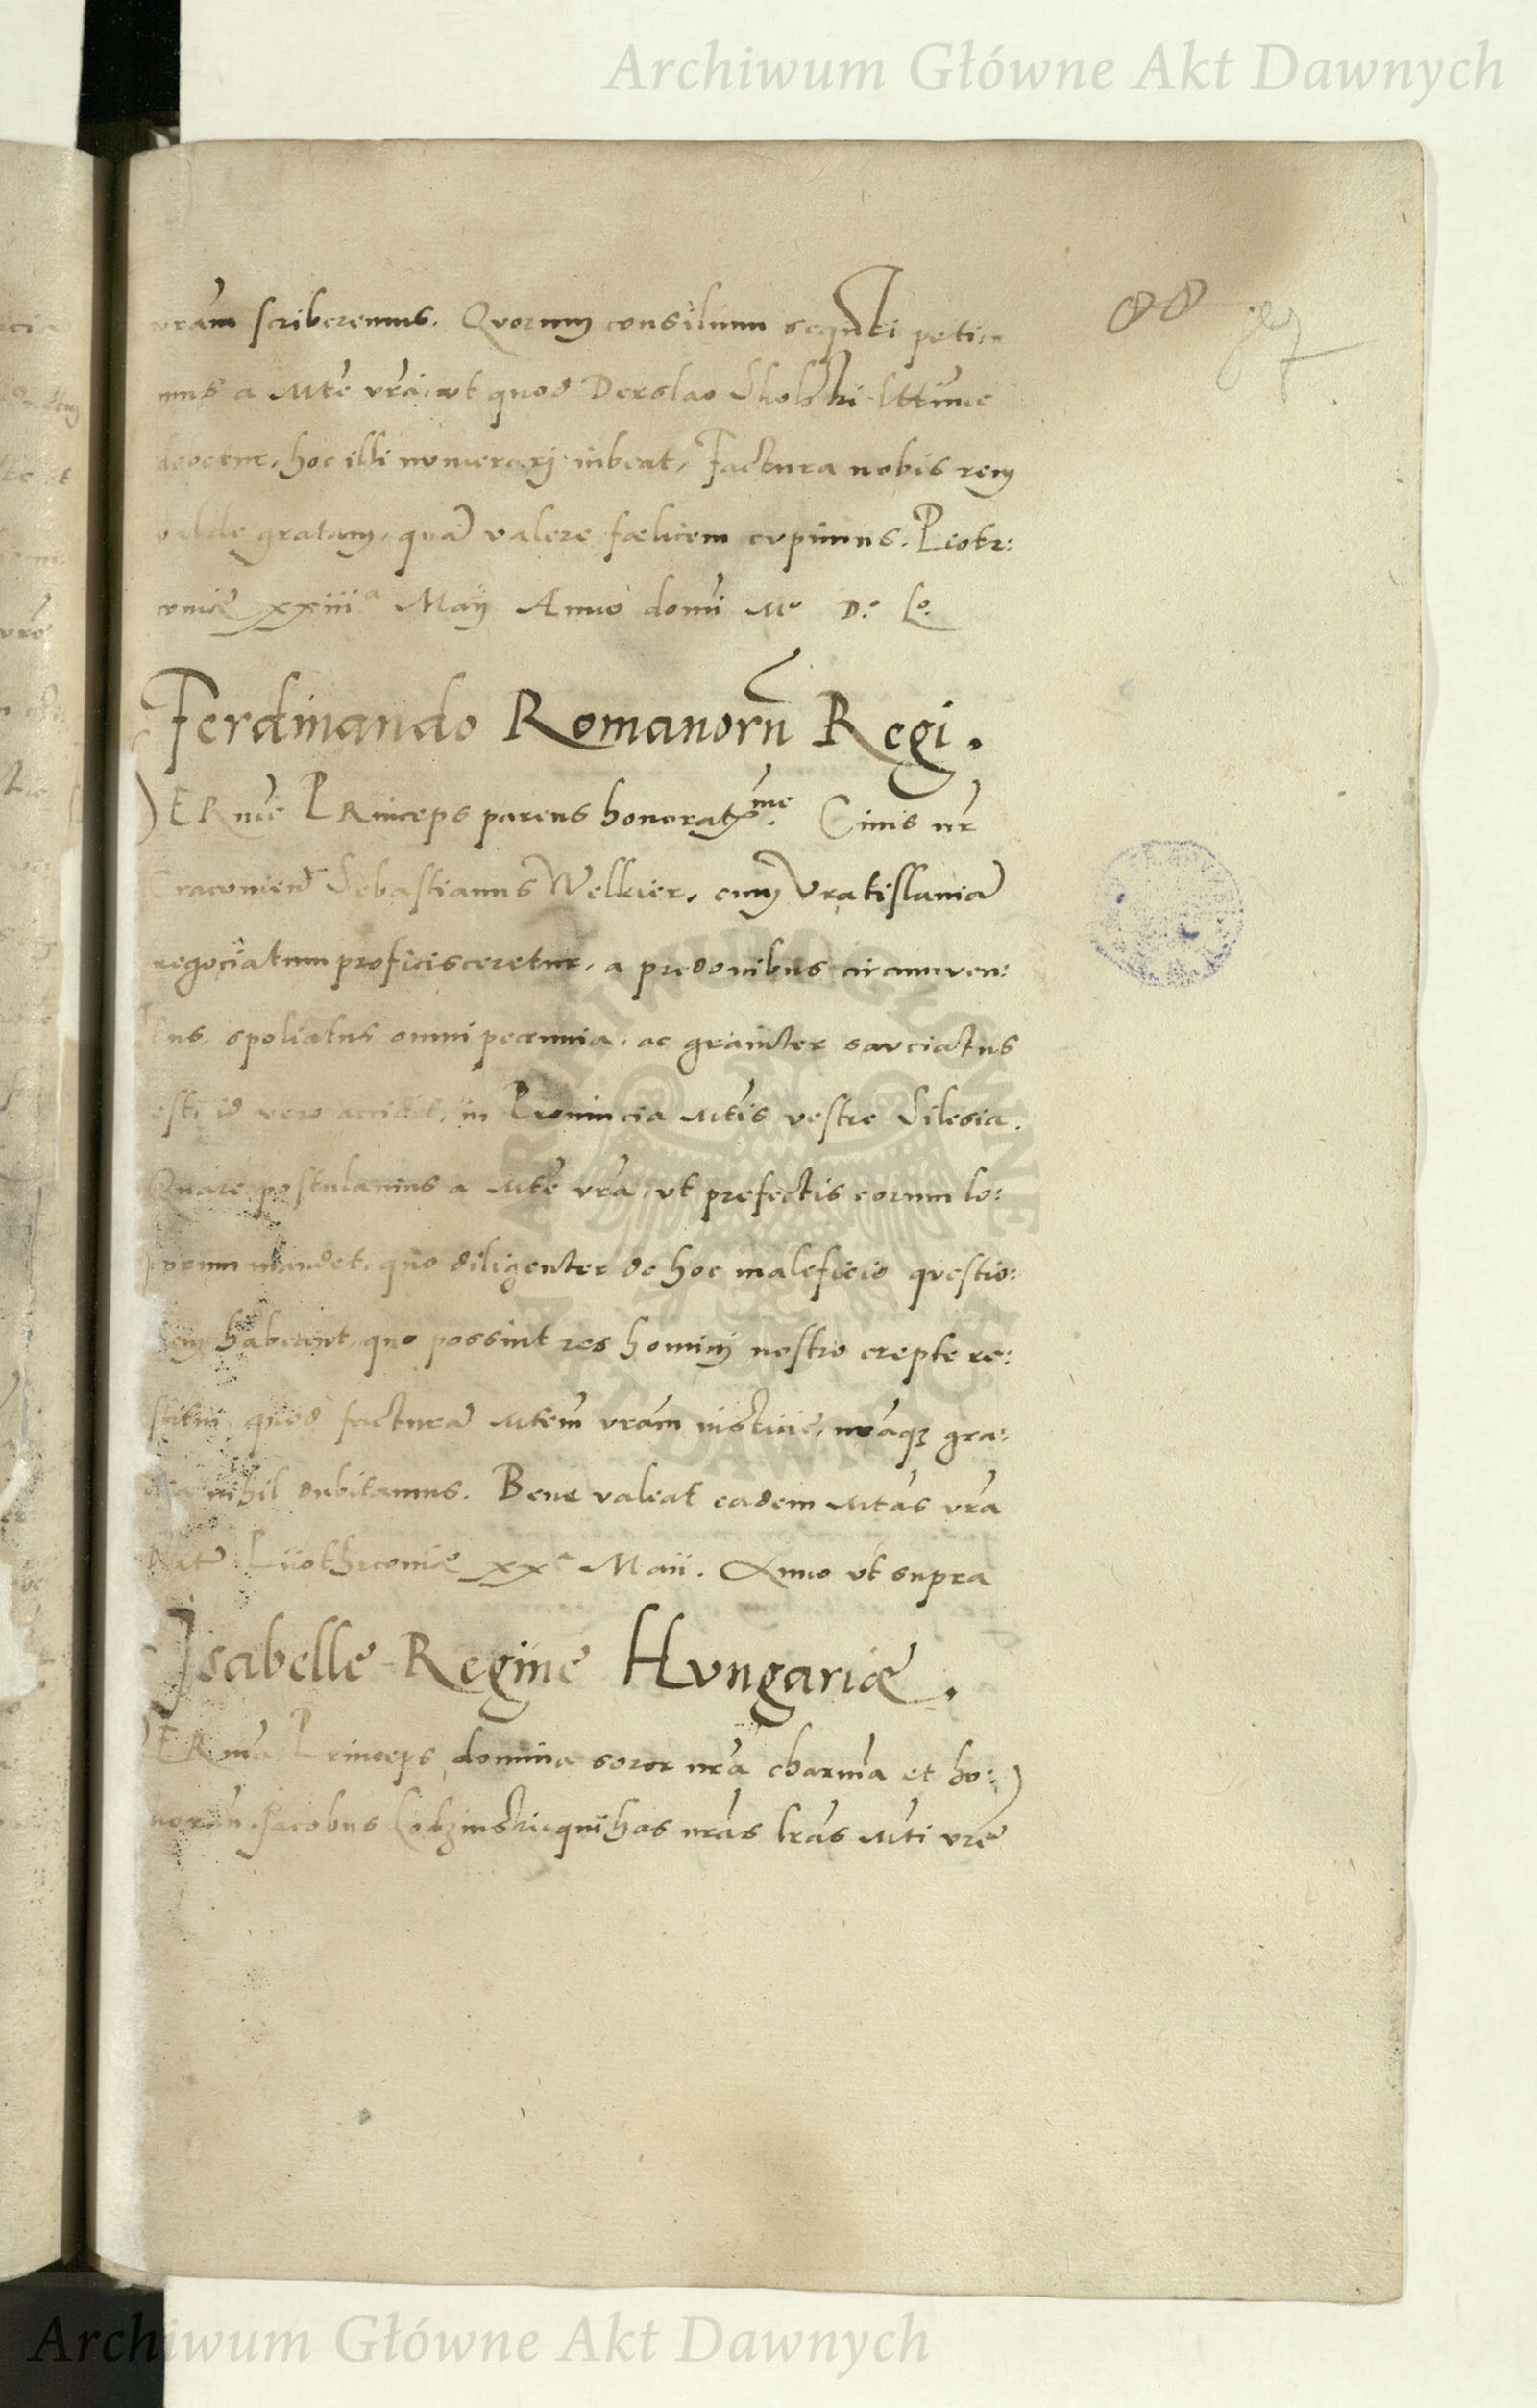 Archiwum Główne Akt Dawnych
88
vram scriberemus. Quorum consilium sequuti peti:
mus a Mte vra, ut quod Derslao Skolski lttime
debetur, hoc illi numerarj iubeat, Factura nobis rem
valde gratam, quā valere fœlicem cupimus. Piotr:
coniæ xxiiiª Maij Anno domi Mº Dº Lº
Ferdinando Romanorū Regi.
SERme PRinceps parens honoratme. Civis nr
Cracovien Sebastianus Welkier, cum Vratislauiā
negociatum proficisceretur, a predonibus circumven:
tus, spoliatus omni pecunia, ac grauiter sauciatus
est, id vero accidit, in Prouincia Mtis vestre Silesia.
Quare postulamus a Mte vra, ut prefectis eorum lo:
corum mandet, quo diligenter de hoc maleficio questio:
nem habeant, quo possint res hominj nostro erepte re:
stitui, quod facturā Mtem vram iusticiæ, nraqꝫ gra:
tia nihil dubitamus. Bene valeat eadem Mtas vra
Dat Piiothrconiæ xxª Maii. Anno ut supra
Isabelle Regine Hungariæ.
SERma Princeps domina soror nra charma et ho:
noran. Jacobus Lobzinski, qui has nras lras Mti vre
ARCHIWUM GŁÓWNE
AKT DAWNYCH
Archiwum Główne Akt Dawnych